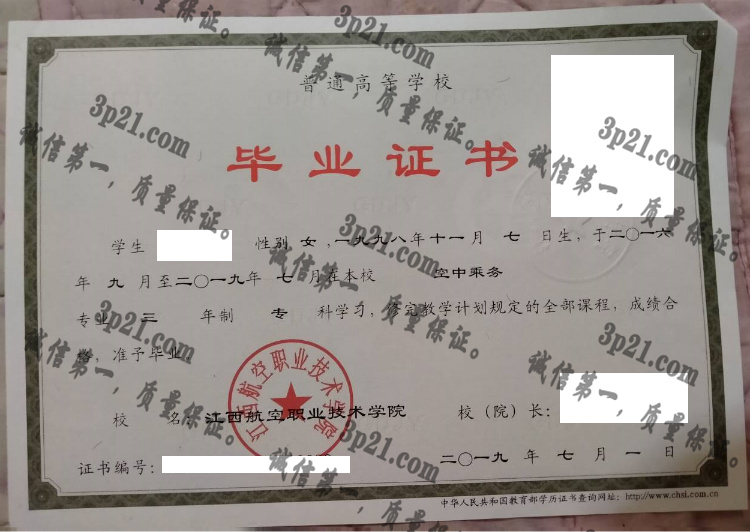 普通高等学校
毕业证书
学生 性别 女,一九九八年十一月 七 日生,于二〇一六
年 九 月至二〇一九年 七 月在本校 空中乘务
专业 三 年制 专 科学习,修完教学计划规定的全部课程,成绩合
格,准予毕业。
校 名:江西航空职业技术学院 校(院)长:
江西航空职业技术学院
证书编号: 二〇一九 年 七 月 一 日
中华人民共和国教育部学历证书查询网址:http://www.chsi.com.cn
3p21.com
诚信第一,质量保证。
3p21.com
诚信第一,质量保证。
3p21.com
诚信第一,质量保证。
3p21.com
诚信第一,质量保证。
3p21.com
诚信第一,质量保证。
3p21.com
诚信第一,质量保证。
3p21.com
诚信第一,质量保证。
3p21.com
诚信第一,质量保证。